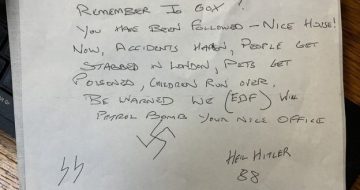 REMEMBER JO COX!
YOU HAVE BEEN FOLLOWED – NICE HOUSE!
NOW, ACCIDENTS HAPEN, PEOPLE GET
STABBED IN LONDON, PETS GET
POISONED, CHILDREN RUN OVER.
BE WARNED WE (EDF) WILL
PETROL BOMB YOUR NICE OFFICE
HEIL HITLER
88